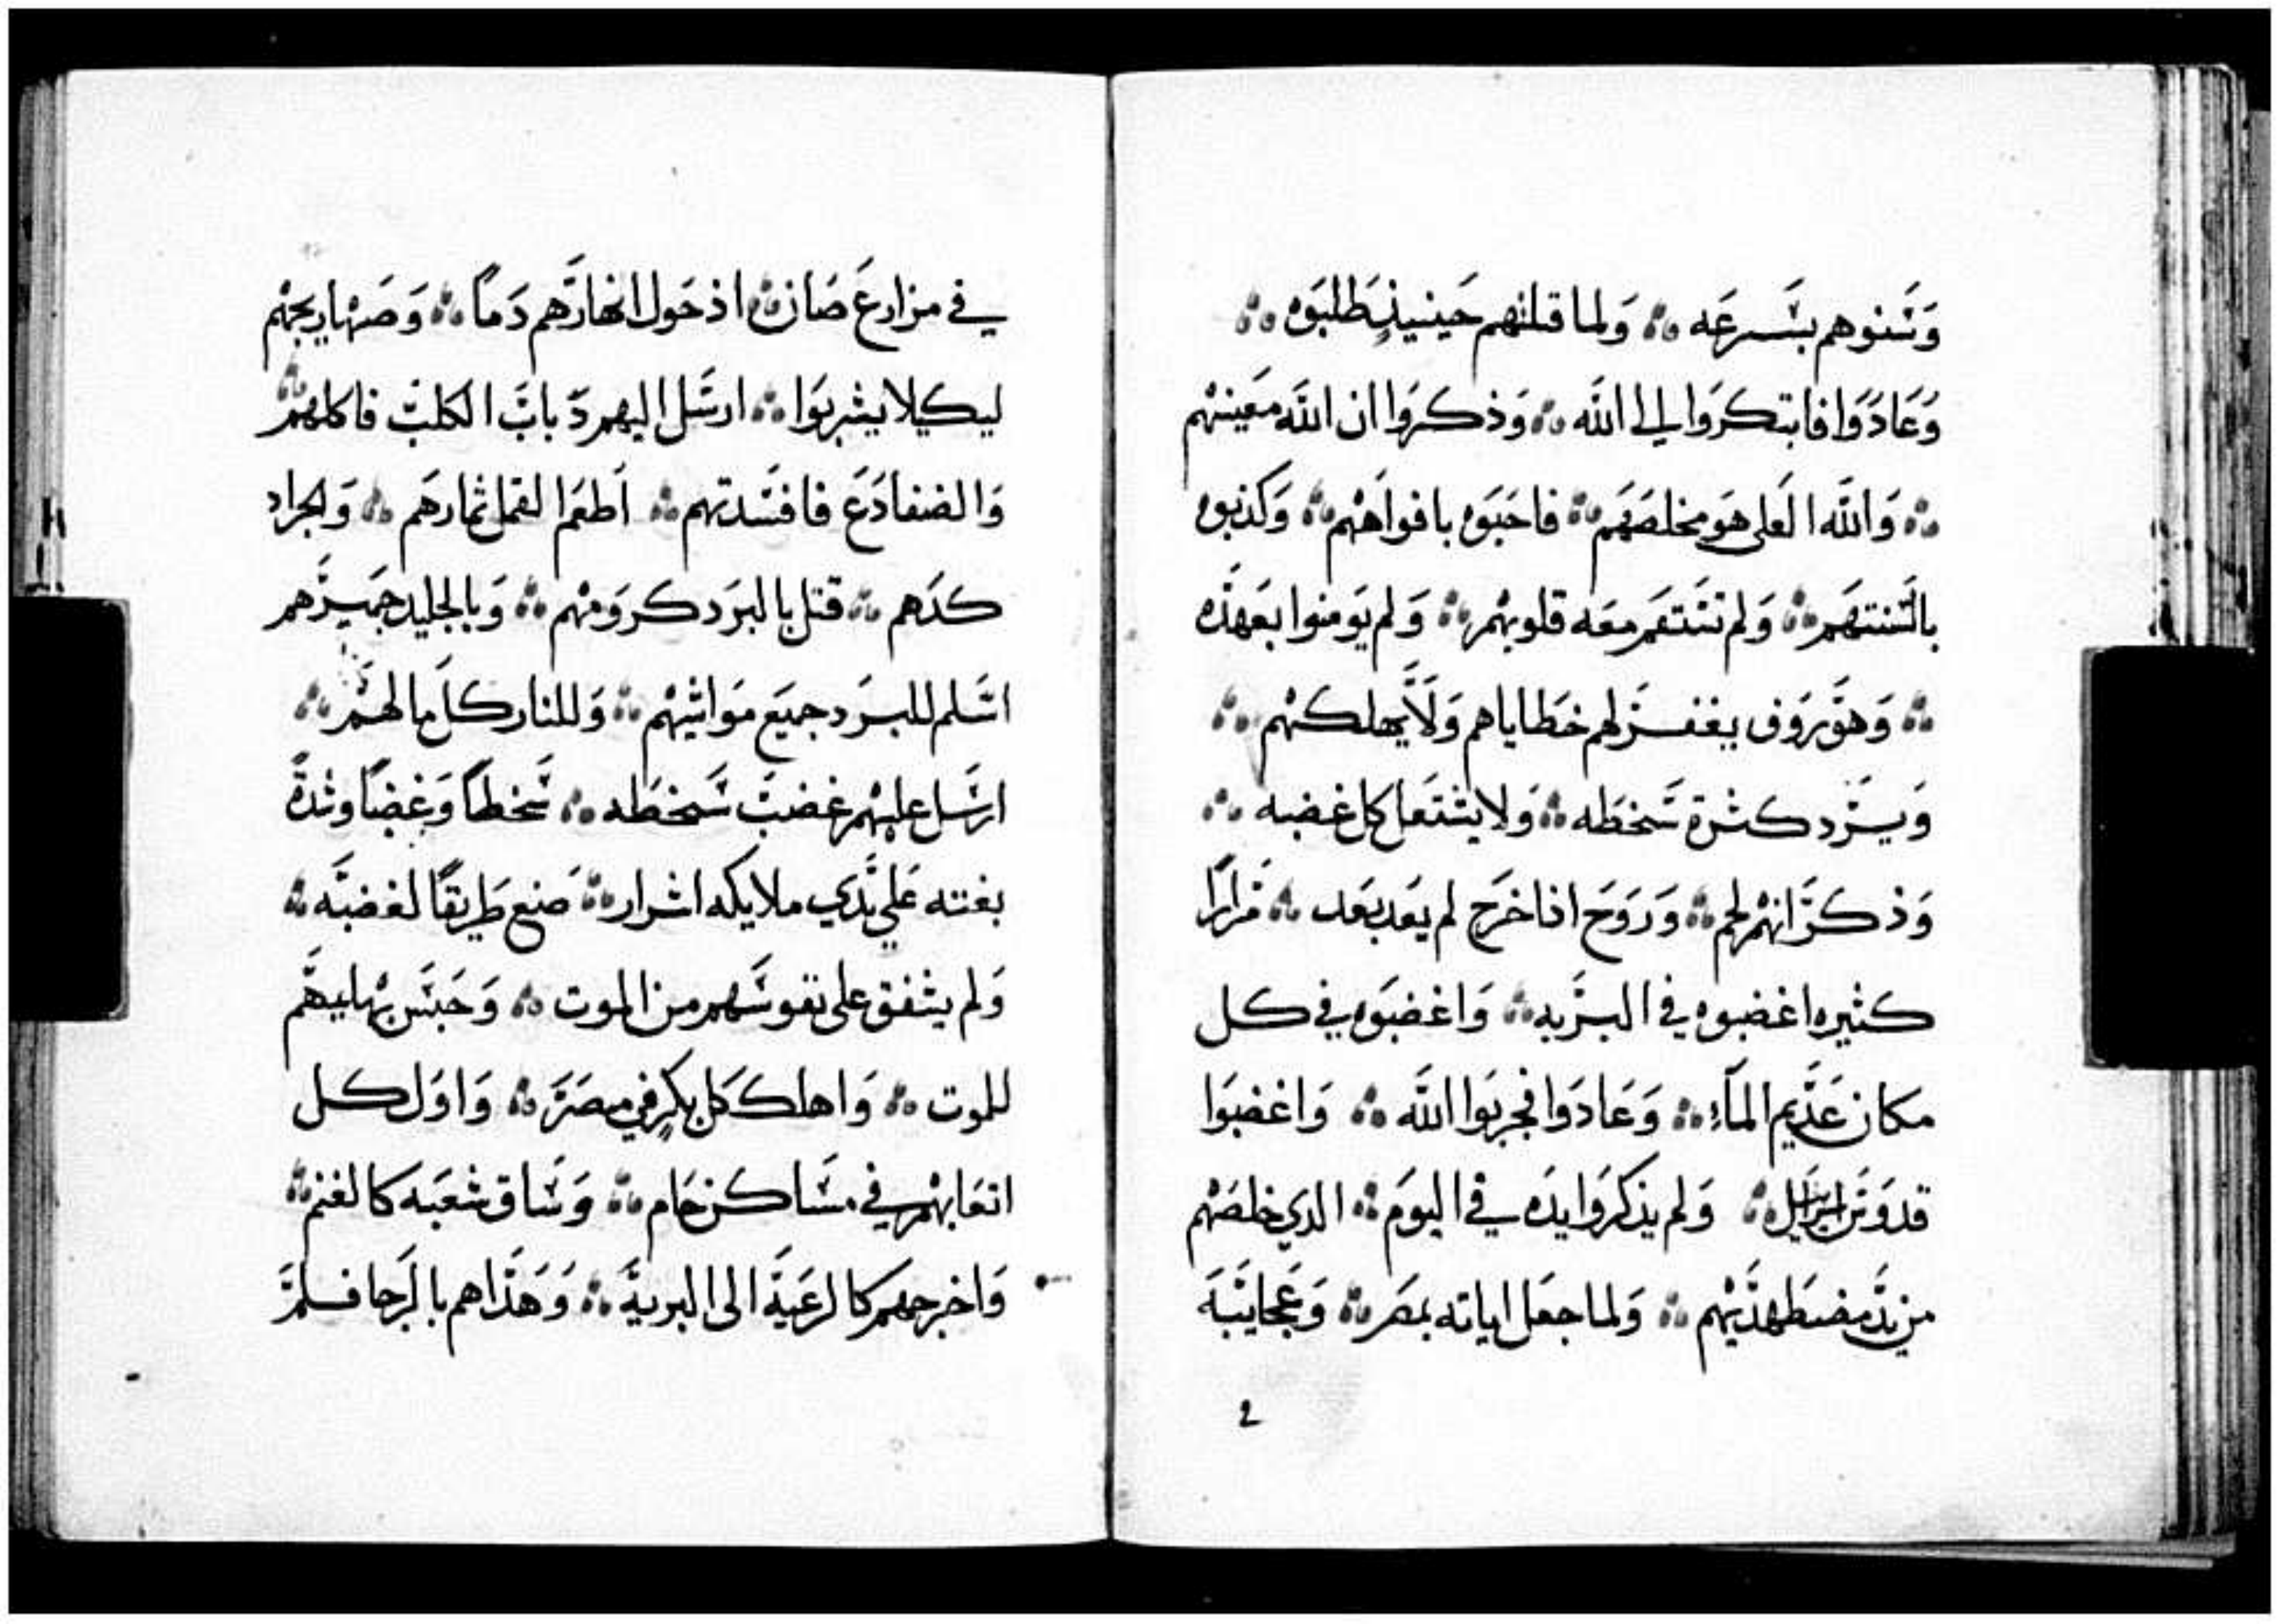 وَسَنوهم بسَرعَه ܀ وَلما قتلهم حَينيذٍ طَلبَوه ܀
وَعَادَوا فابتكرَوا الي الله ܀ وَذكرَوا ان الله مَعينهم
܀ وَالله العَلي هَو مخلصَهَم ܀ فاحَبَوه بافواَههم ܀ وَكذبوه
بالسَنتهَم ܀ وَلم تستقم معَه قلوبهم ܀ وَلم يَومنوا بعَهدَه
܀ وَهوَ رَوف يغفرَ لهم خطَاياهم وَلَا يهلكهم ܀
وَيَرَد كثرة سَخطَه ܀ وَلا يشتعَل كل غضبه ܀
وَذكرَ انهم لحم ܀ وَرَوَح اذا خرَج لم يعَد بعَد ܀ مَرارًا
كثيره اغضبوه في البرَيه ܀ وَاغضبَوه في كل
مكان عَدَيم المآءِ ܀ وَعَادَوا فجربَوا الله ܀ وَاغضبَوا
قدوَسَ اسراييل ܀ وَلم يذكرَوا يدَه في اليوَم ܀ الدي خلصَهم
من يدَ مضطَهدَيهم ܀ وَلما جعَل اياته بمصَر ܀ وَعَجايَبَه
2
في مزارعَ صَان ܀ اذ حَول انهارَهم دَماً ܀ وَصَهاريجهم
ليكيلا يشربَوا ܀ ارسَل اليهم دَبابَ الكلبَ فاكلهم ܀
وَالضفادَعَ فافسَدتهم ܀ اَطعَم القمل ثمارَهَم ܀ وَالجراد
كدَهم ܀ قتل بالبرَد كروَمهم ܀ وَبالجليد جَميزَهم
اسَلم للبرَد جميَع مَواشيهم ܀ وَللنار كلَ ما لهم ܀
ارسَل عليهم غضبَ سَخطَه ܀ سَخطاً وَغضبًا وشدةً
بغته عَلي يَدَي ملايكه اشرار ܀ صَنع طَريقًا لغضبَه ܀
وَلم يشفق علي نفوسَهم من الموت ܀ وَحَبسَ بهايمهَم
للموت ܀ وَاهلك كَل بكرٍ في مصَرَ ܀ وَاوَل كل
اتعَابهم في مسَاكن حَام ܀ وَسَاق شعَبَه كالغنم ܀
وَاخرجهَم كالرعَيةَ الى البريةَ ܀ وَهَدَاهم بالرَجا فلمَ